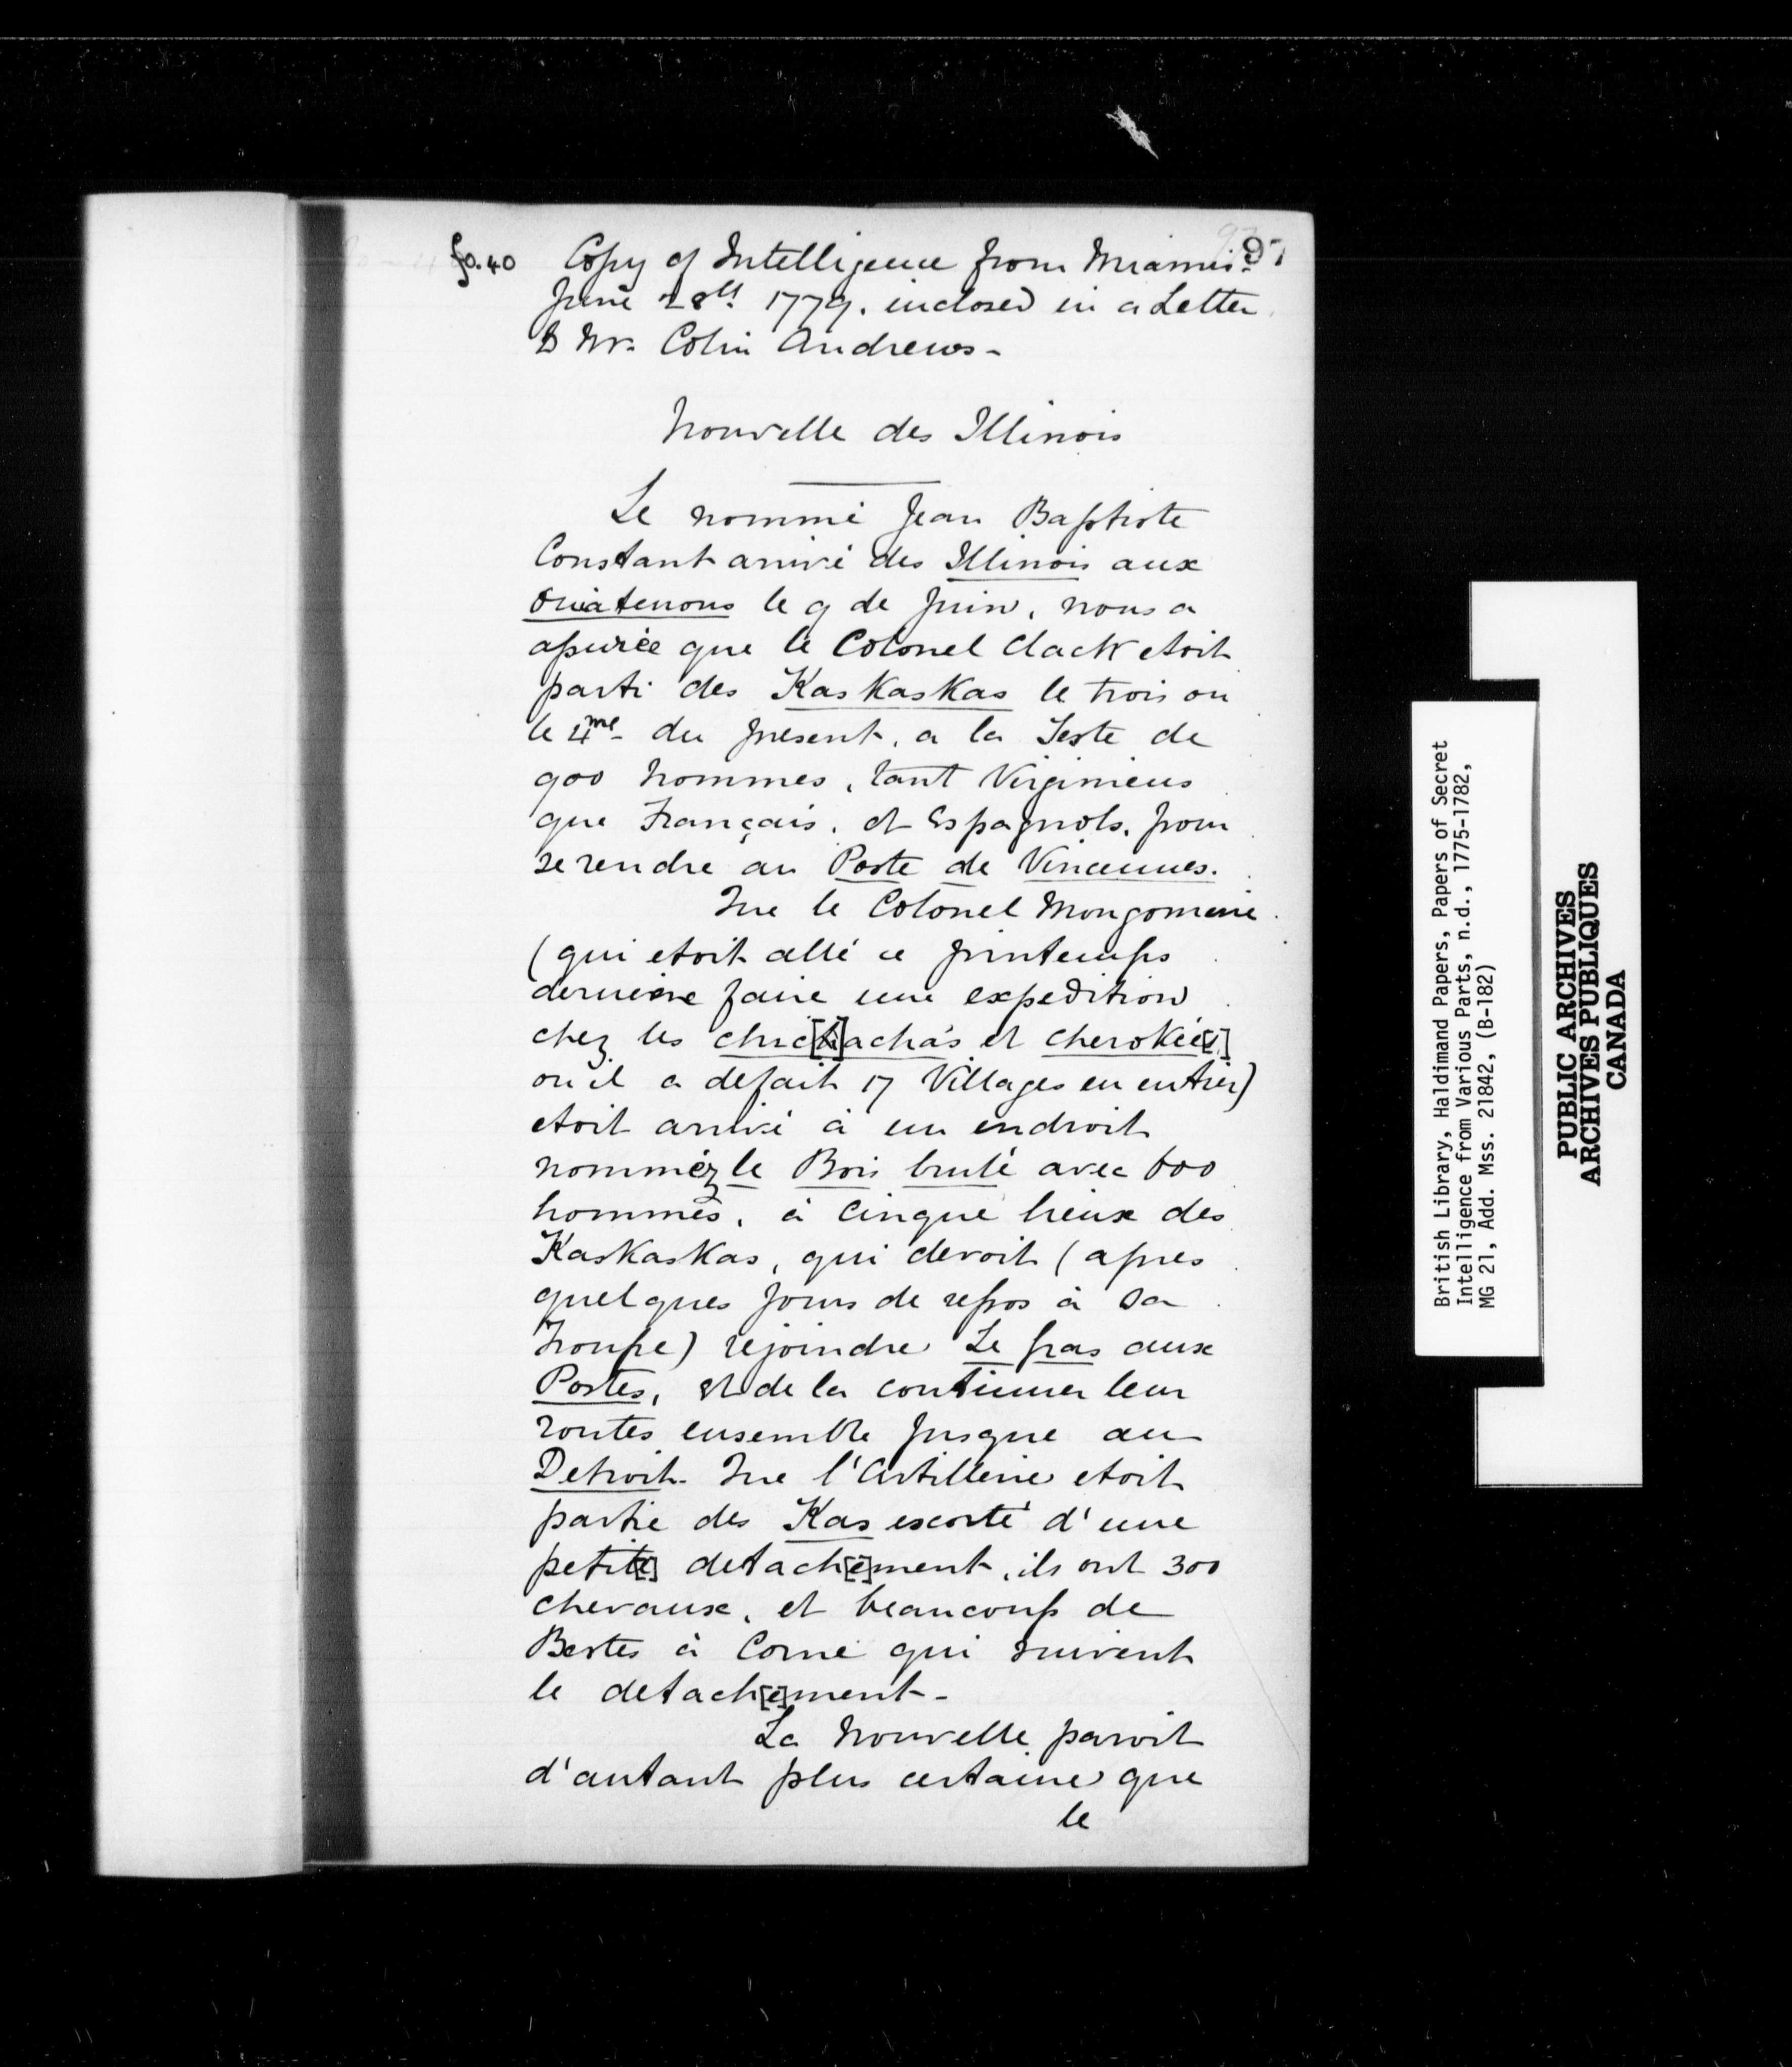 97
fo. 40 Copy of Intelligence from Miamis.
June 28th 1779. inclosed in a Letter
to Mr. Colin Andrews -
Nouvelle des Illinois
Le nommé Jean Baptiste
Constant arrivé des Illinois aux
Ouiatenons le 9 de Juin, nous a
assurée que le Colonel Clack etoit
parti des KasKasKas le trois ou
le 4me du present, a la Teste de
900 hommes, tant Virginiens
que Français, et Espagnols, pour
se rendre au Poste de Vincennes.
Que le Colonel Mongomerie
(qui etoit allé ce printemps
derniere faire une expedition
chez les chic[k]achas et cherokée[s]
ou il a defait 17 Villages en entier)
etoit arrivé à un endroit
nomméz le Bois brulé avec 600
hommes, à Cinque lieux des
KasKasKas, qui devoit (apres
quelques Jours de repos à sa
Troupe) rejoindre Le gras aux
Postes, et de la continuer leur
routes ensemble Jusque au
Detroit. Que l'Artillerie etoit
partie des Kas escorté d'une
petit[e] detach[e]ment, ils ont 300
chevaux, et beaucoup de
Bestes à Corne qui suivent
le detach[e]ment -
La Nouvelle paroit
d'autant plus certaine que
le
British Library, Haldimand Papers, Papers of Secret
Intelligence from Various Parts, n.d., 1775-1782,
MG 21, Add. Mss. 21842, (B-182)
PUBLIC ARCHIVES
ARCHIVES PUBLIQUES
CANADA